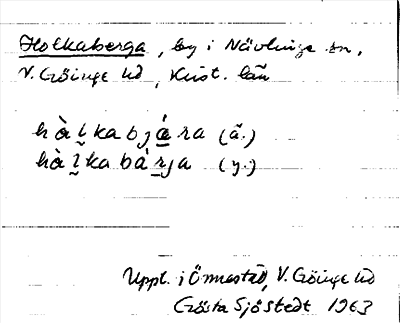 Holkaberga, by i Nävlinge sn,
V. Göinge hd, Krist. län
hàlkabjára (ä.)
hàlkabárja (y.)
Uppt. i Önnestad, V. Göinge hd
Gösta Sjöstedt 1963